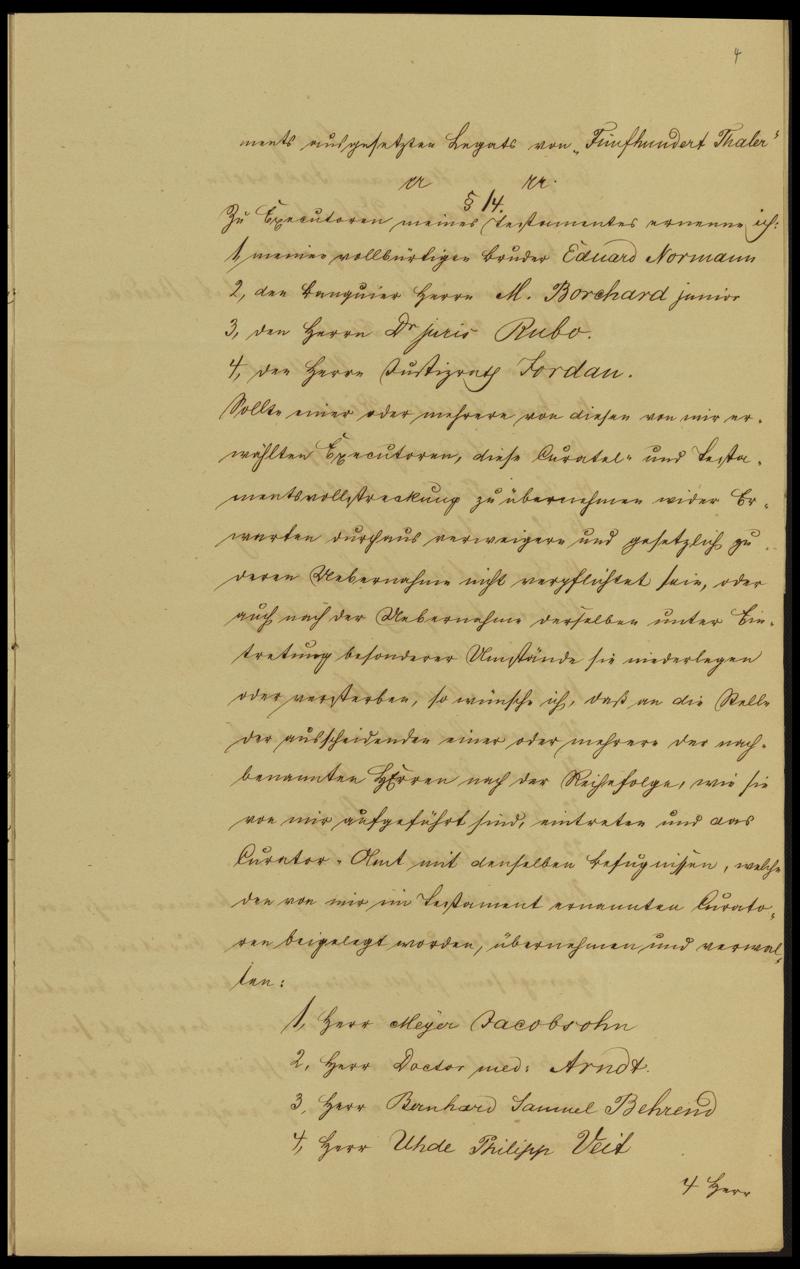 4
ments ausgesetzten Legats von „Fünfhundert Thaler“
rr rr.
§ 14.
Zu Executoren meines Testamentes ernenne ich:
1, meinen vollbürtigen Bruder Eduard Normann
2, den Banquier Herrn M. Borchard junior
3, den Herrn Dr juris Rubo.
4, den Herrn Justizrath Jordan.
Sollte einer oder mehrere von diesen von mir er-
wählten Executoren, diese Curatel- und Testa-
mentsvollstreckung zu übernehmen wider Er-
warten durchaus verweigern und gesetzlich zu
deren Uebernahme nicht verpflichtet sein, oder
auch nach der Uebernahme derselben unter Ein-
tretung besonderer Umstände sie niederlegen
oder versterben, so wünsche ich, daß an die Stelle
der ausscheidenden einer oder mehrere der nach-
benannten Herren nach der Reihefolge, wie sie
von mir aufgeführt sind, eintreten und das
Curator-Amt mit denselben Befugnissen, welche
den von mir im Testament ernannten Curato-
ren beigelegt worden, übernehmen und verwal-
ten:
1, Herr Meyer Jacobsohn
2, Herr Doctor med: Arndt.
3, Herr Bernhard Samuel Behrend
4, Herr Uhde Philipp Veit
4 Herr